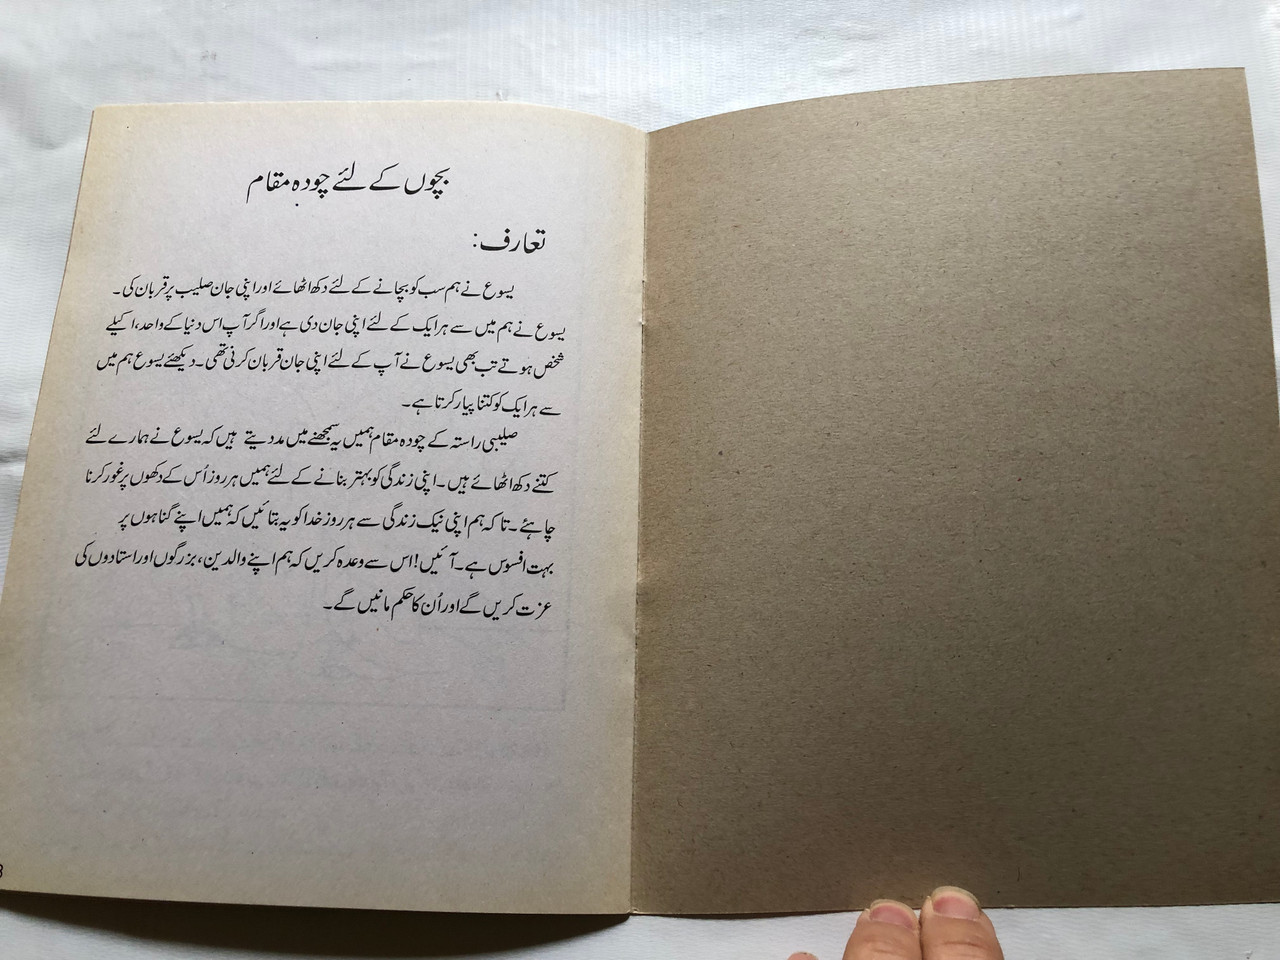 بچوں کے لئے چودہ مقام
تعارف:
یسوع نے ہم سب کو بچانے کے لئے دکھ اٹھائے اور اپنی جان صلیب پر قربان کی۔
یسوع نے ہم میں سے ہر ایک کے لئے اپنی جان دی ہے اور اگر آپ اس دنیا کے واحد، اکیلے
شخص ہوتے تب بھی یسوع نے آپ کے لئے اپنی جان قربان کرنی تھی۔ دیکھئے یسوع ہم میں
سے ہر ایک کو کتنا پیار کرتا ہے۔
صلیبی راستہ کے چودہ مقام ہمیں یہ سمجھنے میں مدد دیتے ہیں کہ یسوع نے ہمارے لئے
کتنے دکھ اٹھائے ہیں۔ اپنی زندگی کو بہتر بنانے کے لئے ہمیں ہر روز اُس کے دکھوں پر غور کرنا
چاہئے۔ تا کہ ہم اپنی نیک زندگی سے ہر روز خدا کو یہ بتائیں کہ ہمیں اپنے گناہوں پر
بہت افسوس ہے۔ آئیں! اس سے وعدہ کریں کہ ہم اپنے والدین، بزرگوں اور استادوں کی
عزت کریں گے اور اُن کا حکم مانیں گے۔
3